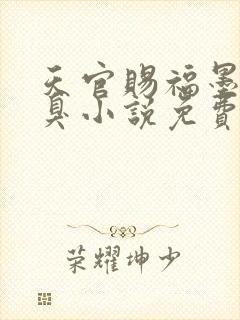 天官赐福墨
具小说免費
荣耀坤少